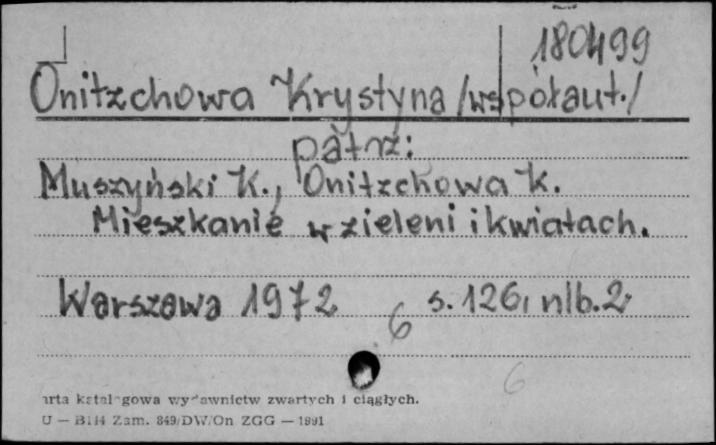 180499
Onitzchowa Krystyna /współaut./
patrz:
Muszyński K., Onitzchowa K.
Mieszkanie w zieleni i kwiatach.
Warszawa 1972 s. 126, nlb. 2
6
6
arta katalogowa wydawnictw zwartych i ciągłych.
U — B114 Zam. 849/DW/On ZGG — 1991